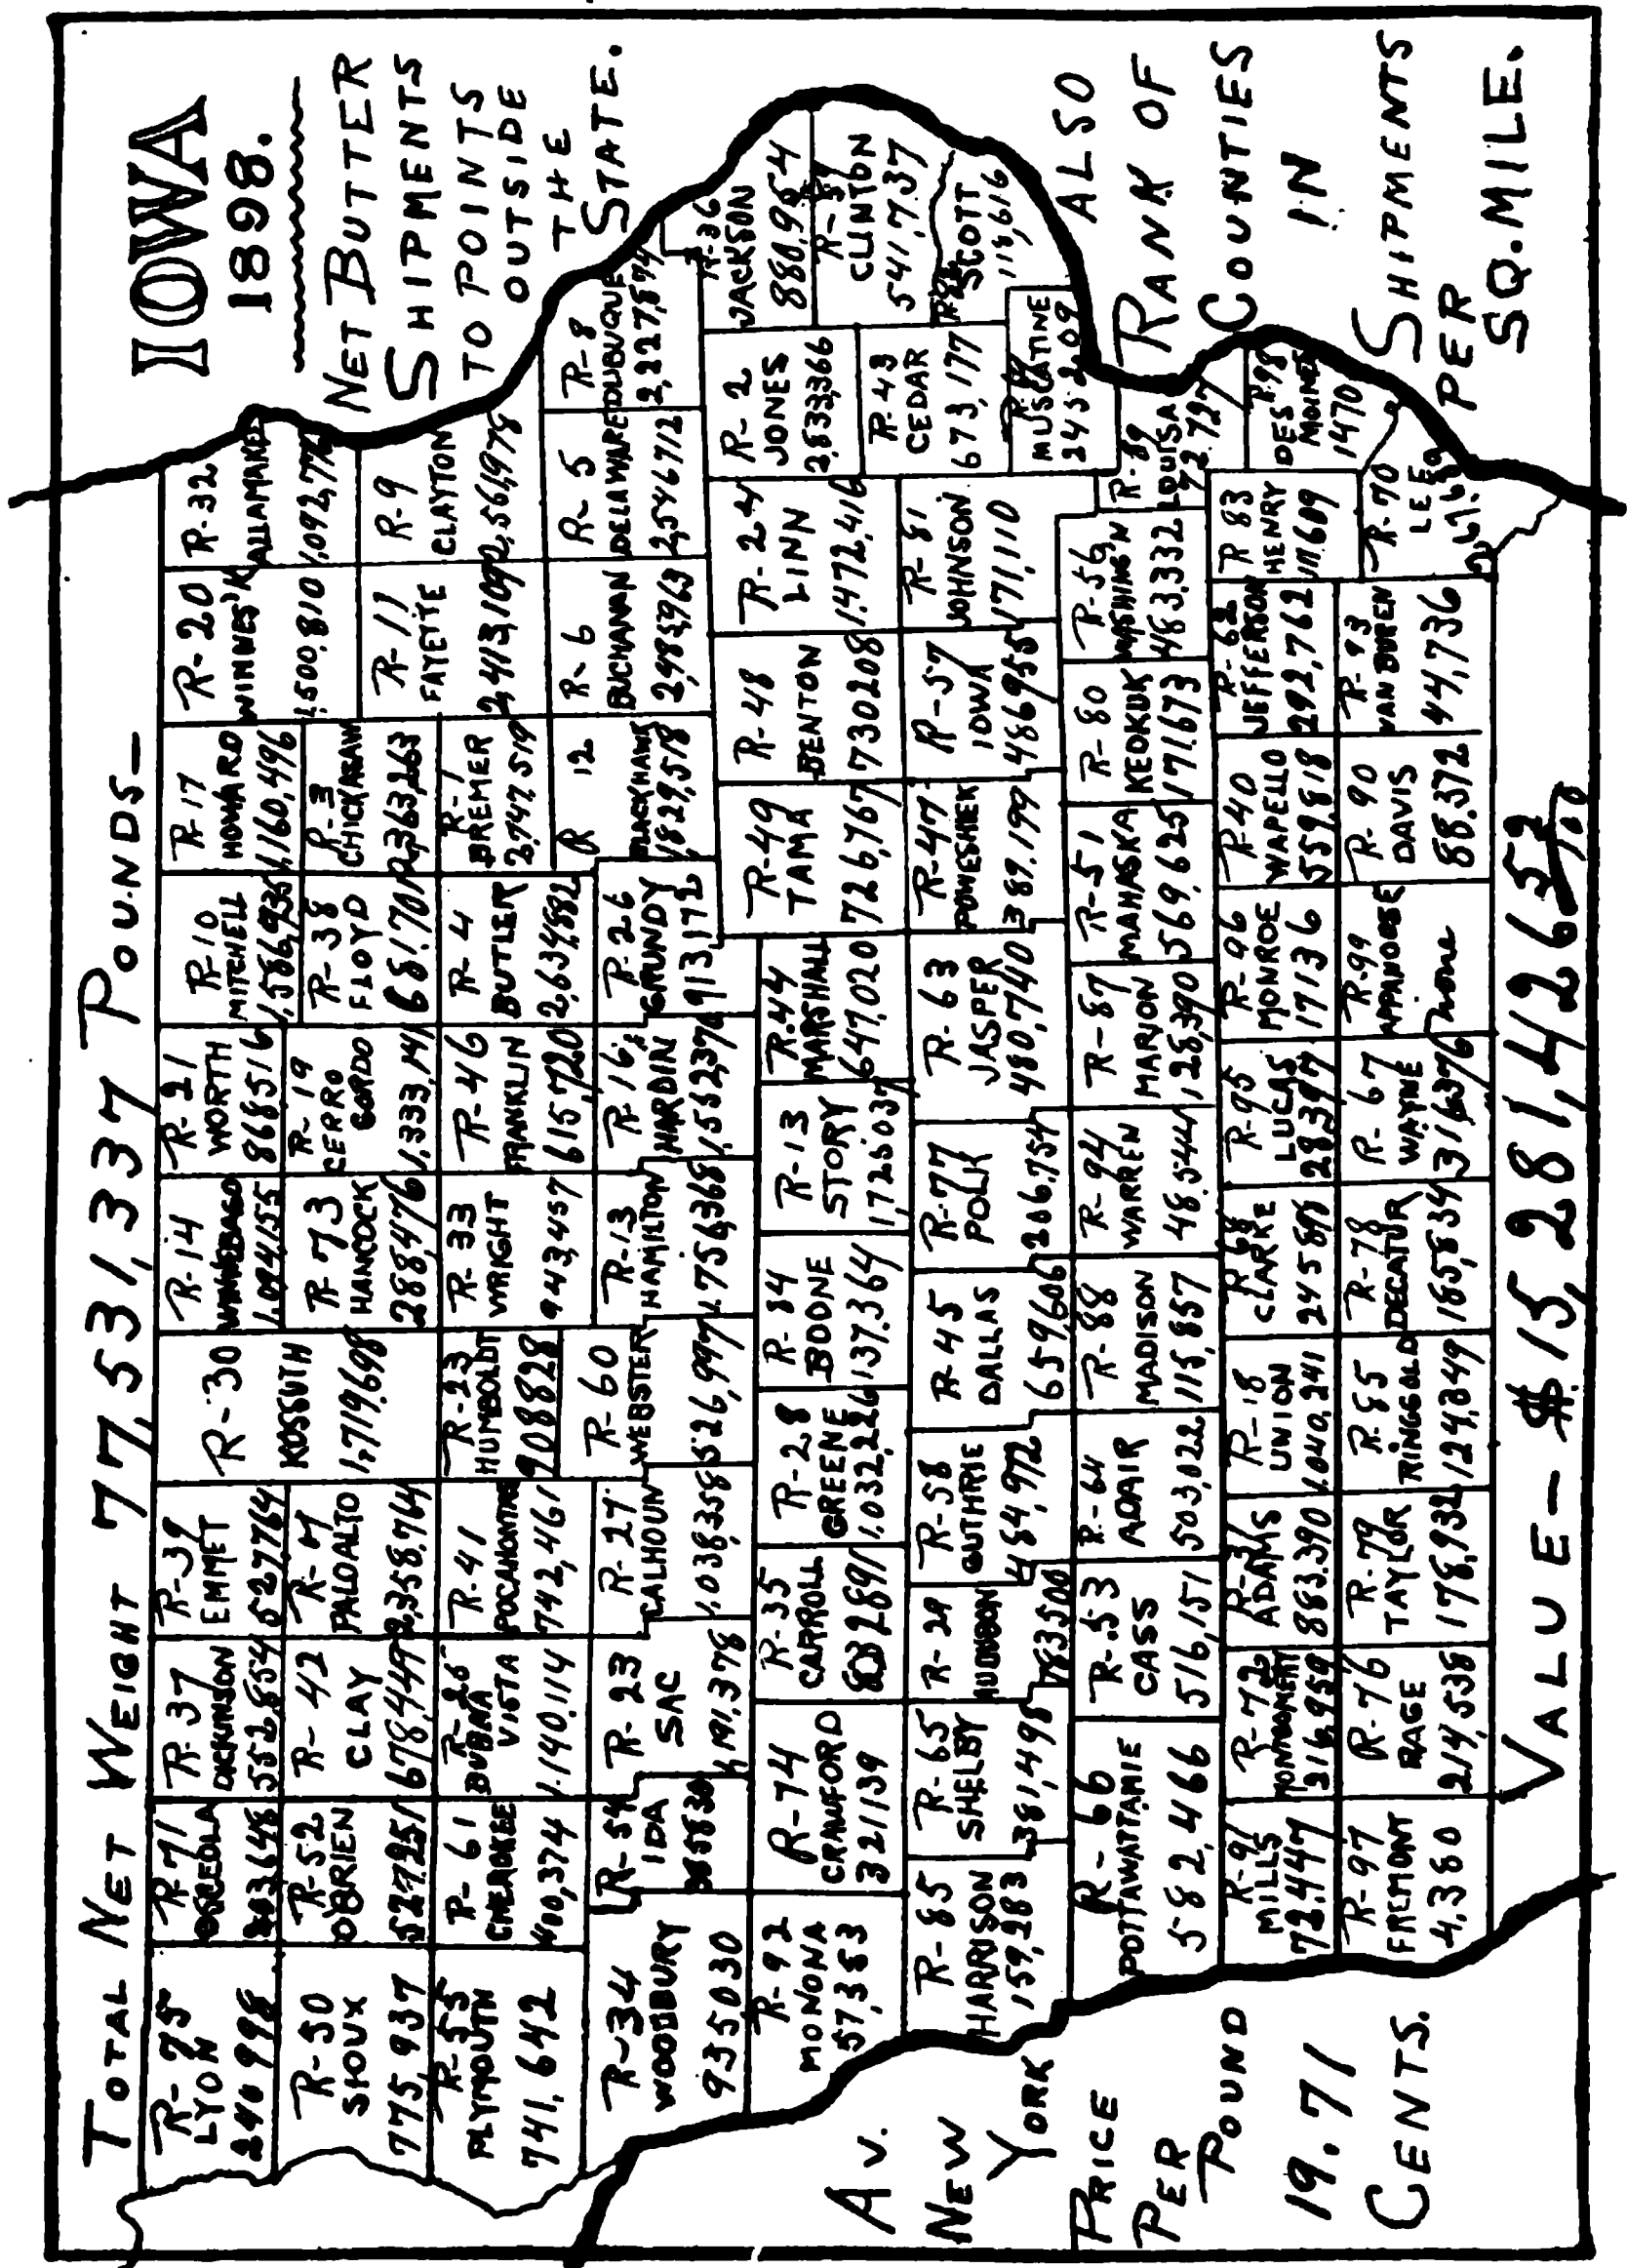 TOTAL NET WEIGHT 77,531,337 POUNDS—
IOWA
1898.
NET BUTTER
SHIPMENTS
TO POINTS
OUTSIDE
THE
STATE.
R-75
LYON
240998
R-71
OSCEOLA
R-37
DICKINSON
552,854
R-39
EMMET
527764
R-30
KOSSUTH
1,719,698
R-14
WINNEBAGO
1,094,155
R-21
WORTH
868516
R-10
MITCHELL
1,586,935
R-17
HOWARD
1,160,496
R-20
WINNES'K
1,500,810
R-32
ALLAMAKEE
1,092,776
R-50
SIOUX
775,937
R-52
OBRIEN
527,251
R-42
CLAY
678,449
R-7
PALOALTO
2,358,764
R-73
HANCOCK
288,476
R-19
CERRO
GORDO
1,333,141
R-38
FLOYD
681,701
R-3
CHICKASAW
2,363,263
R-11
FAYETTE
2,413,109
R-9
CLAYTON
2,561,978
R-55
PLYMOUTH
741,642
R-61
CHEROKEE
400,374
R-26
BUENA
VISTA
1,140,114
R-41
POCAHONTAS
742,461
R-23
HUMBOLDT
908828
R-33
WRIGHT
943,457
R-46
FRANKLIN
615,720
R-4
BUTLER
2,634,882
R-1
BREMER
2,747,519
R-34
WOODBURY
935030
R-54
IDA
R-23
SAC
1,191,378
R-27
CALHOUN
1,038,358
R-60
WEBSTER
526,997
R-13
HAMILTON
1,756,368
R-16
HARDIN
1,552,370
R-26
GRUNDY
913,172
R 12
BLACKHAWK
1,829,518
R-6
BUCHANAN
2,485,963
R-5
DELAWARE
2,546,712
R-8
DUBUQUE
2,227,874
R-92
MONONA
57,383
R-74
CRAWFORD
321139
R-35
CARROLL
R-28
GREENE
1,032,226
R-84
BOONE
137,364
R-13
STORY
1,725,037
R-44
MARSHALL
647,020
R-49
TAMA
726,767
R-48
BENTON
730208
R-24
LINN
1,472,416
R-2
JONES
2,833,366
R-36
JACKSON
880,954
CLINTON
541,737
R-85
HARRISON
159,283
R-65
SHELBY
381,498
R-29
AUDUBON
783,500
R-58
GUTHRIE
484,972
R-45
DALLAS
659,606
R-77
POLK
206,754
R-63
JASPER
480,740
R-47
POWESHIEK
389,199
R-57
IOWA
486,955
R-81
JOHNSON
171,110
R-43
CEDAR
673,177
SCOTT
118,616
MUSCATINE
245,209
R-66
POTTAWATTAMIE
582,466
R-53
CASS
516,151
R-64
ADAIR
503,022
R-88
MADISON
115,857
R-94
WARREN
48,544
R-87
MARION
128,390
R-51
MAHASKA
569,625
R-80
KEOKUK
171,673
R-56
WASHING'N
483,332
R-89
LOUISA
72,727
R-91
MILLS
72,447
R-72
MONTGOMERY
216,959
R-31
ADAMS
883,390
R-18
UNION
1,040,241
R 68
CLARKE
R-95
LUCAS
28,397
R-96
MONROE
17136
R-40
WAPELLO
559,818
R-62
JEFFERSON
292,762
R 83
HENRY
111,609
R-98
DES
MOINES
1470
R-97
FREMONT
4,380
R-76
PAGE
214,538
R-79
TAYLOR
178,932
R-85
RINGGOLD
124,849
R-78
DECATUR
165,834
R-67
WAYNE
R-99
APPANOOSE
none
R-90
DAVIS
88,372
R-93
VAN BUREN
44,736
R-70
LEE
AV.
NEW
YORK
PRICE
PER
POUND
19.71
CENTS.
ALSO
RANK OF
COUNTIES
IN
SHIPMENTS
PER
SQ. MILE.
VALUE—$15,281,426 52/100